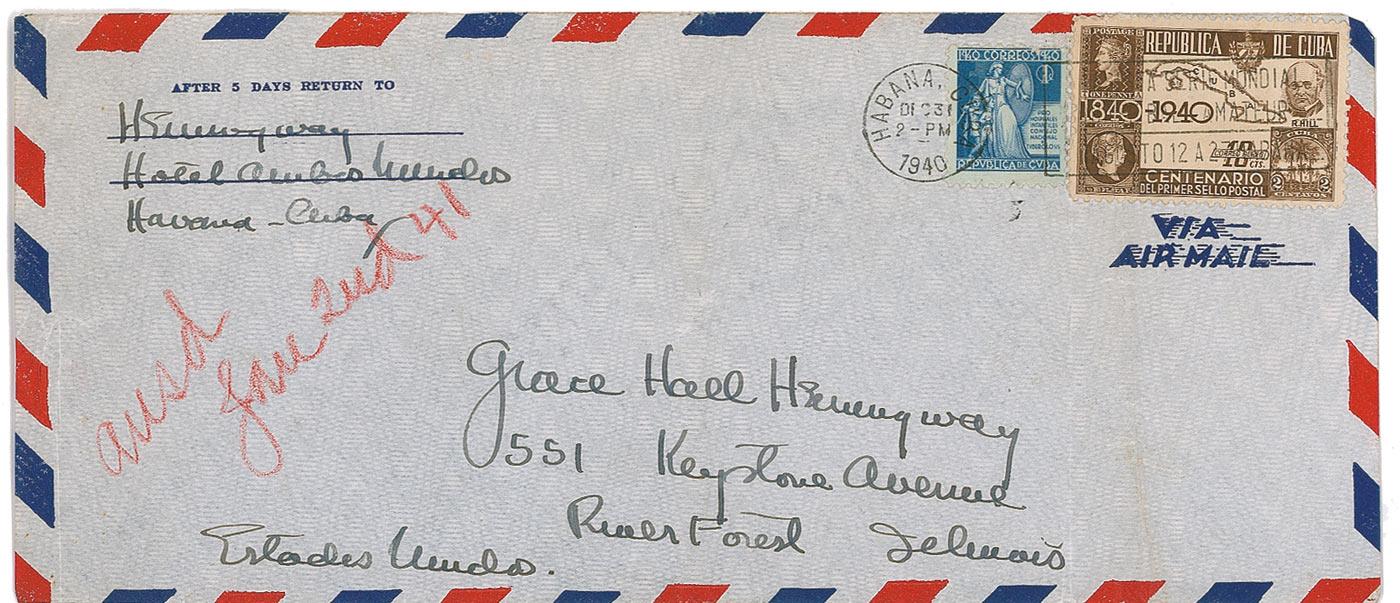 AFTER 5 DAYS RETURN TO
Hemingway
Hotel Ambos Mundos
Havana - Cuba
ansd
Jan 2nd 41
HABANA,
DIC 31
2 - PM
1940
1940 CORREOS 1940
1
PRO
HOSPITALES
INFANTILES
CONSEJO
NACIONAL
TUBERCULOSIS
REPUBLICA DE CUBA
POSTAGE
ONE PENNY
REPUBLICA DE CUBA
CUBA
1840 1940
R. HILL
CORREO AEREO
10 CTS.
CENTENARIO
DEL PRIMER SELLO POSTAL
2 CENTAVOS 2
SERIE MUNDIAL
AMATEUR
TO 12 A 2
VIA
AIR MAIL
Grace Hall Hemingway
551 Keystone Avenue
River Forest Illinois
Estados Unidos.